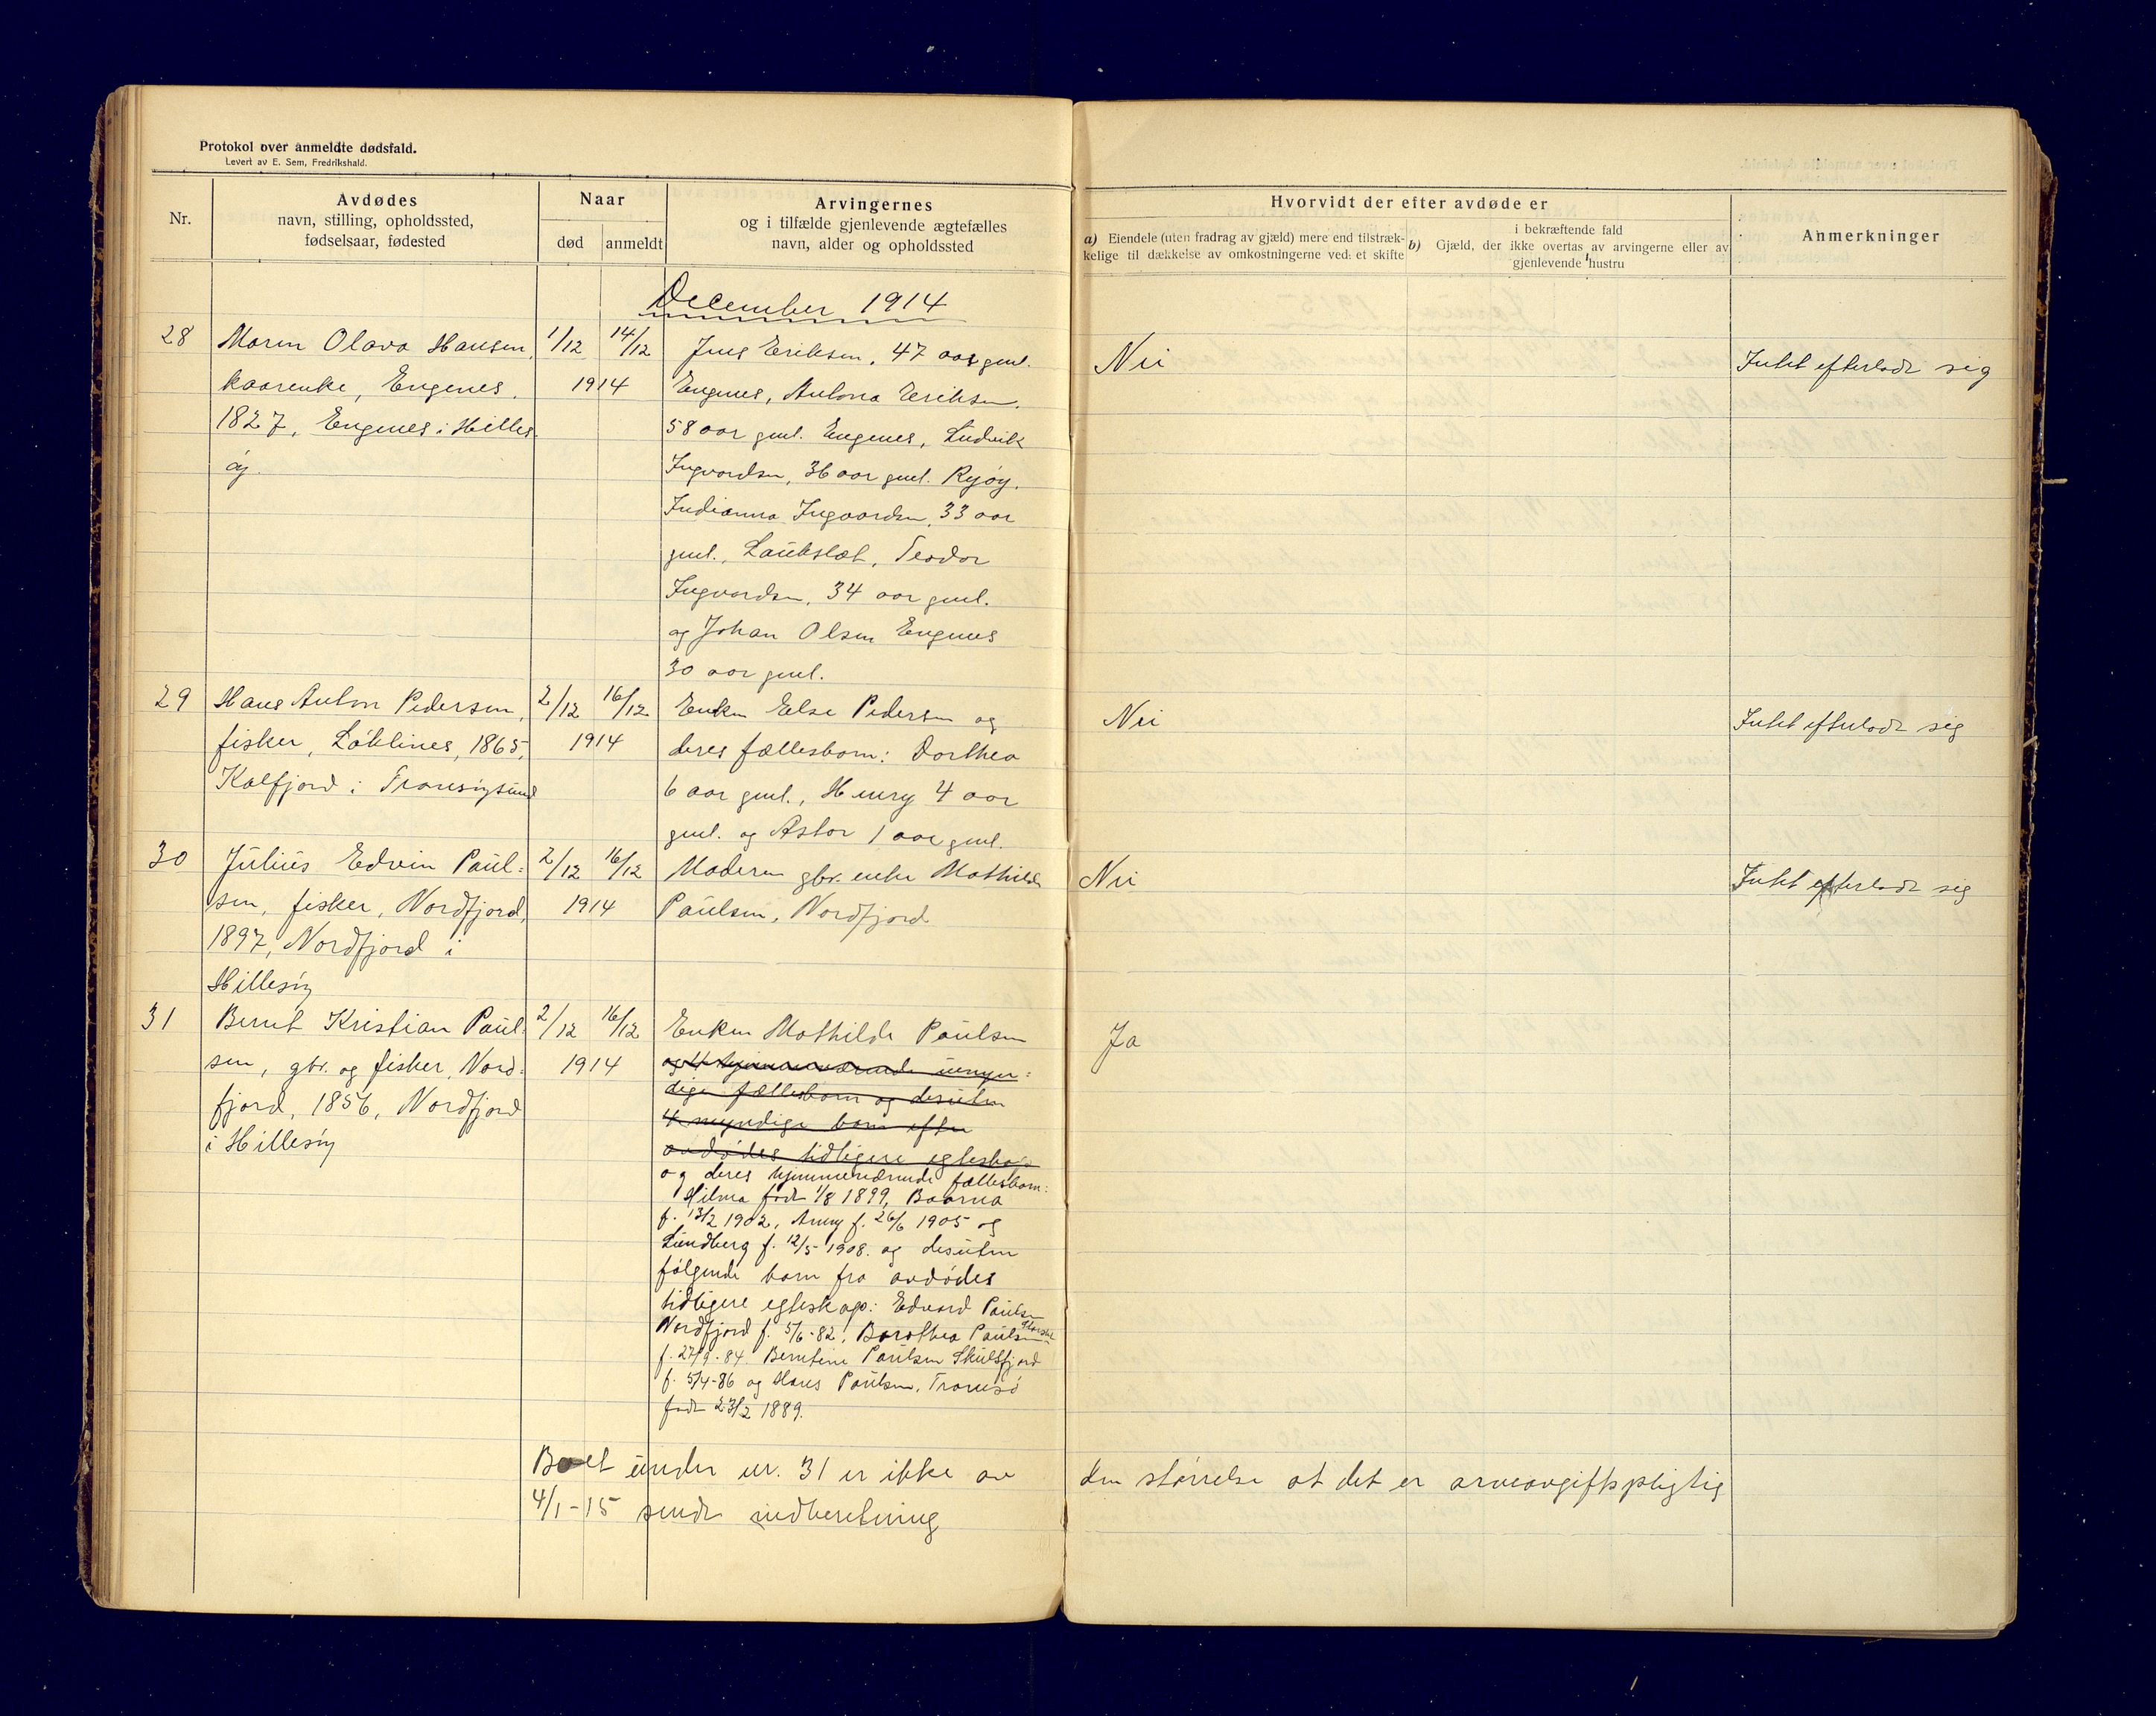 Protokol over anmeldte dødsfald.
Levert av E. Sem, Fredrikshald.
Nr.
Avdødes
navn, stilling, opholdssted,
fødselsaar, fødested
Naar
død
anmeldt
Arvingernes
og i tilfælde gjenlevende ægtefælles
navn, alder og opholdssted
Hvorvidt der efter avdøde er
a) Eiendele (uten fradrag av gjæld) mere end tilstræk-
kelige til dækkelse av omkostningerne ved et skifte
i bekræftende fald
b) Gjæld, der ikke overtas av arvingerne eller av
gjenlevende hustru
Anmerkninger
December 1914
28
Maren Olava Hansen,
kaarenke, Engenes,
1827, Engenes i Hilles
øy.
1/12 14/12
1914
Jens Eriksen, 47 aar gml.
Engenes, Antona Eriksen,
58 aar gml. Engenes, Ludvik
Ingvardsen, 36 aar gml. Ryøy,
Indianna Ingvardsen, 33 aar
gml., Laukslæt, Teodor
Ingvardsen, 34 aar gml.
og Johan Olsen Engenes
30 aar gml.
Nei
Intet efterladt sig
29
Hans Anton Pedersen,
fisker, Løklines, 1865,
Kalfjord i Tromsøysund
2/12 16/12
1914
Enken Else Pedersen og
deres fællesbarn: Dorthea
6 aar gml., Henry 4 aar
gml. og Astor 1 aar gml.
Nei
Intet efterladt sig
30
Julius Edvin Paul=
sen, fisker, Nordfjord,
1897, Nordfjord i
Hillesøy
2/12 16/12
1914
Moderen gbr. enke Mathilde
Paulsen, Nordfjord
Nei
Intet efterladt sig
31
Bernt Kristian Paul=
sen, gbr. og fisker, Nord=
fjord, 1856, Nordfjord
i Hillesøy
2/12 16/12
1914
Enken Mathilde Paulsen
og 4 hjemmeværende umyn=
dige fællesbarn og desuten
4 myndige barn efter
avdødes tidligere egteskap
og deres hjemmeværende fællesbarn:
Hilma født 1/8 1899, Baarna
f. 13/2 1902, Anny f. 26/6 1905 og
Lundberg f. 12/5 1908. og desuten
følgende barn fra avdødes
tidligere egteskap: Edvard Paulsen
Nordfjord f. 5/6-82, Dorothea Paulsen
f. 27/9-84. Berntine Paulsen Skulsfjord
f. 5/4-86 og Hans Paulsen, Tromsø
født 23/2 1889.
Ja
Boet under nr. 31 er ikke av den størrelse at det er arveavgiftspligtig
4/1-15 sendt indberetning